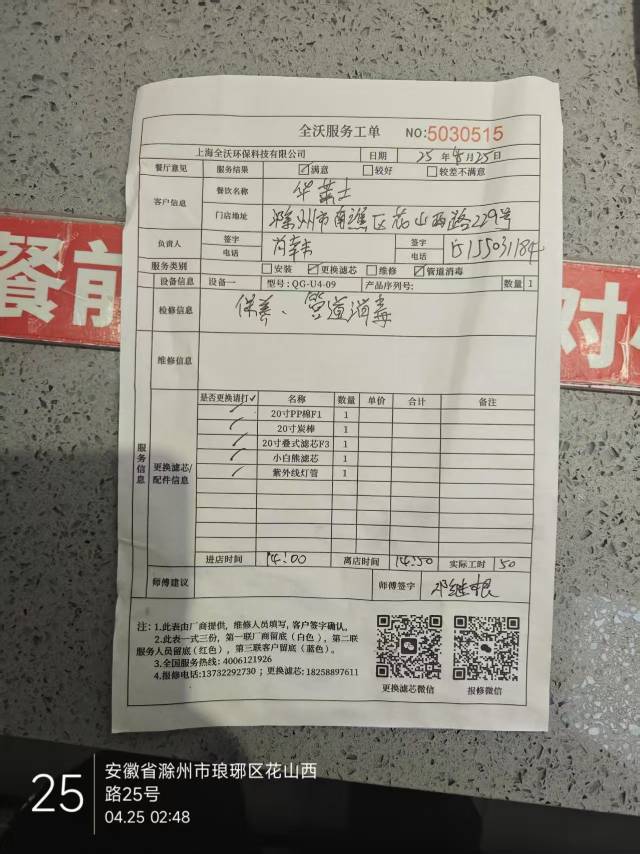 全沃服务工单 NO:5030515
上海全沃环保科技有限公司 日期 25年4月25日
餐厅意见 服务结果 ☑满意 □较好 □较差不满意
客户信息 餐饮名称 华莱士
门店地址 滁州市南谯区花山西路229号
负责人 签字 电话 签字 电话
服务类别 □安装 ☑更换滤芯 □维修 ☑管道消毒
设备信息 设备一 型号:QG-U4-09 产品序列号: 数量 1
检修信息 保养、管道消毒
维修信息
服务信息
更换滤芯/配件信息
是否更换请打✓ 名称 数量 单价 合计 备注
✓ 20寸PP棉F1 1
✓ 20寸炭棒 1
✓ 20寸叠式滤芯F3 1
✓ 小白熊滤芯 1
✓ 紫外线灯管 1
进店时间 14:00 离店时间 14:50 实际工时 50
师傅建议 师傅签字 邓继根
注:1.此表由厂商提供,维修人员填写,客户签字确认。
2.此表一式三份,第一联厂商留底(白色),第二联
服务人员留底(红色),第三联客户留底(蓝色)。
3.全国服务热线:4006121926
4.报修电话:13732292730;更换滤芯:18258897611
更换滤芯微信 报修微信
餐前
对
25
安徽省滁州市琅琊区花山西
路25号
04.25 02:48